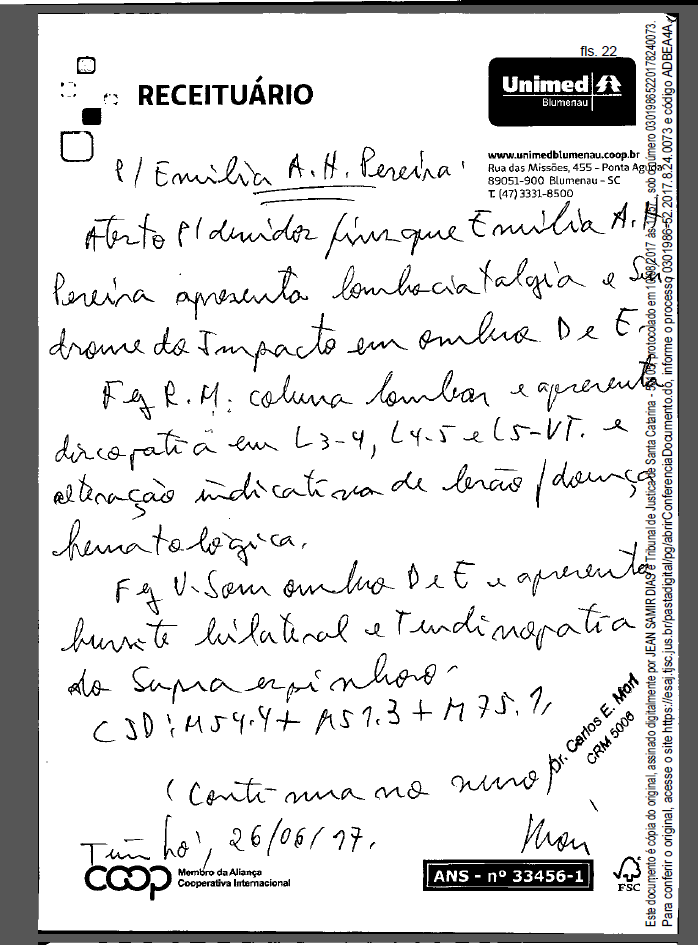 fls. 22
RECEITUÁRIO
Unimed
Blumenau
www.unimedblumenau.coop.br
Rua das Missões, 455 - Ponta Aguda
89051-900 Blumenau - SC
T. (47) 3331-8500
P/ Emilia A. H. Pereira
Atesto P/ devidos fins que Emilia A. H.
Pereira apresenta lombociatalgia e Sín
drome do Impacto em ombro D e E.
Fez R.M. coluna lombar e apresenta
discopatia em L3-4, L4-5 e L5-VT. e
alteração indicativa de lesão / doença
hematológica.
Fez U-Som ombro D e E e apresenta
bursite bilateral e Tendinopatia
do Supra espinhoso.
CID: M54.4 + M51.3 + M75.1,
(Continua no verso)
Timbó, 26/06/17.
Dr. Carlos E. Mori
CRM 5006
coop
Membro da Aliança
Cooperativa Internacional
ANS - nº 33456-1
FSC
Este documento é cópia do original, assinado digitalmente por JEAN SAMIR DIAS e Tribunal de Justica de Santa Catarina - protocolado em 10/08/2017 às 17:57 , sob o número 03019865220178240073.
Para conferir o original, acesse o site https://esaj.tjsc.jus.br/pastadigital/pg/abrirConferenciaDocumento.do, informe o processo 0301986-52.2017.8.24.0073 e código ADBEA4A.